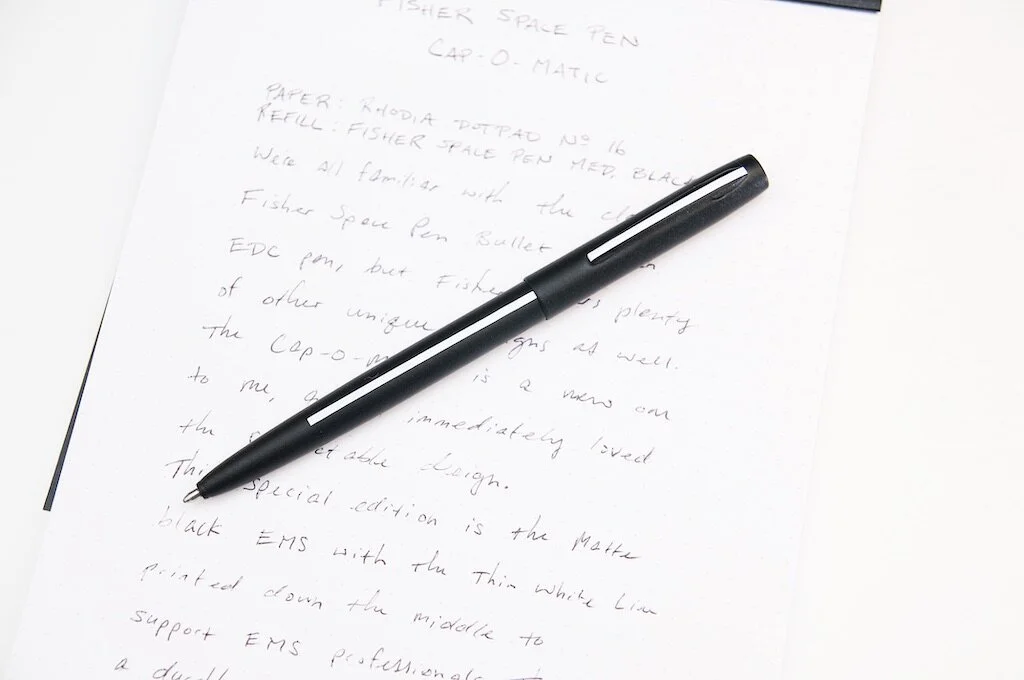 FISHER SPACE PEN
CAP-O-MATIC
PAPER: RHODIA DOTPAD Nº 16
REFILL: FISHER SPACE PEN MED. BLACK
We're all familiar with the
Fisher Space Pen Bullet
EDC pen, but Fisher plenty
of other unique as well.
The Cap-o- is a new one
to me, immediately loved
the design.
This special edition is the Matte
black EMS with the Thin White Line
printed down the middle to
support EMS professionals
a